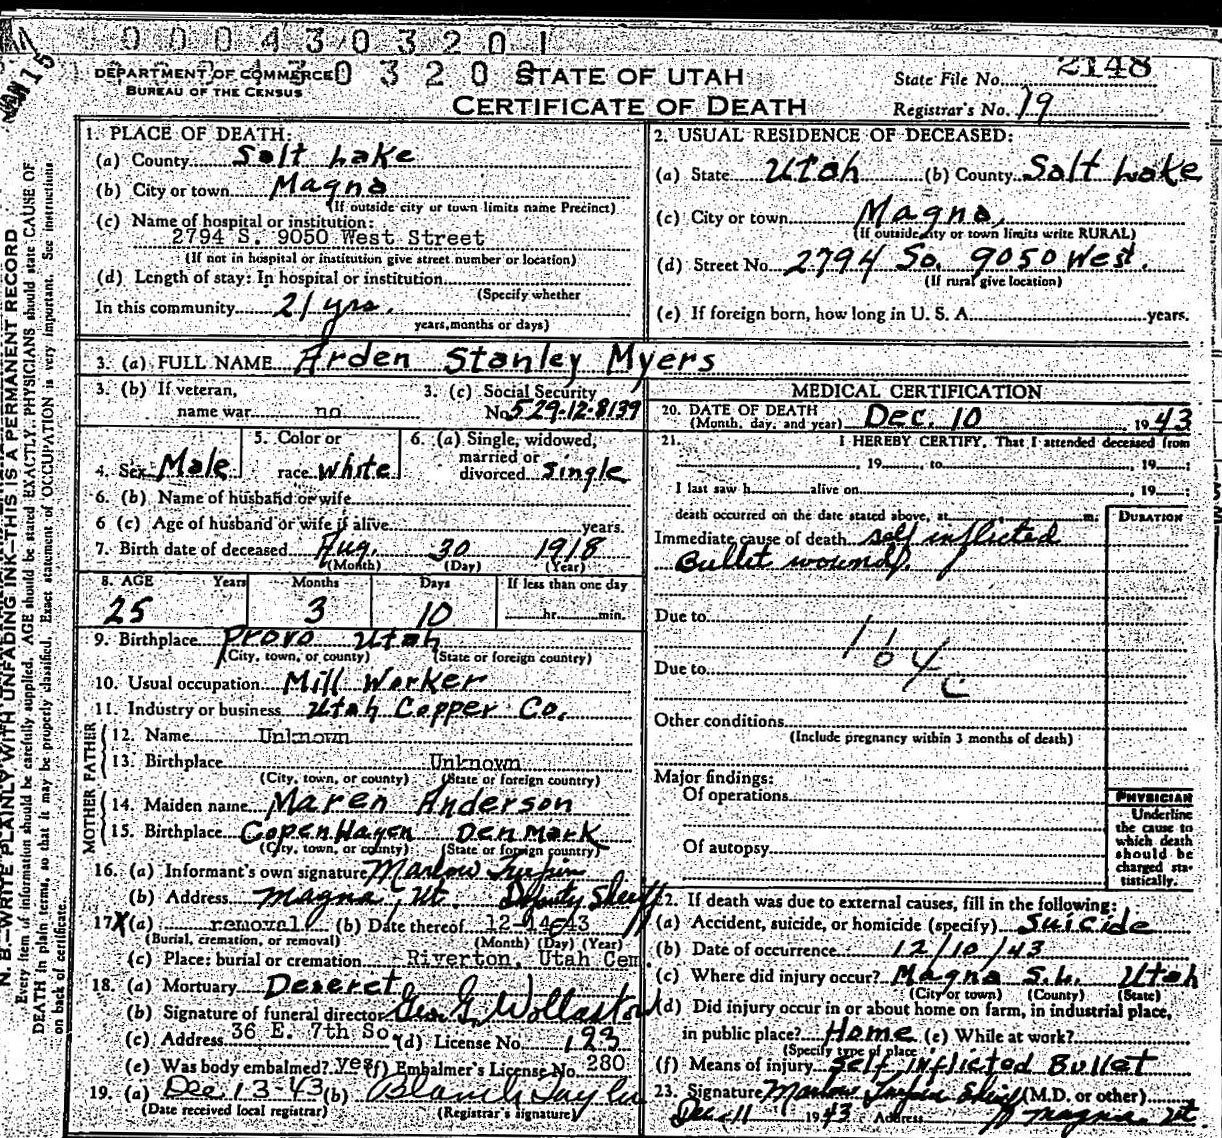 0004303201
DEPARTMENT OF COMMERCE 0 3 2 0 STATE OF UTAH State File No. 2148
BUREAU OF THE CENSUS CERTIFICATE OF DEATH Registrar's No. 19
N. B.—WRITE PLAINLY WITH UNFADING INK—THIS IS A PERMANENT RECORD
Every item of information should be carefully supplied. AGE should be stated EXACTLY. PHYSICIANS should state CAUSE OF
DEATH in plain terms, so that it may be properly classified. Exact statement of OCCUPATION is very important. See instructions
on back of certificate.
1. PLACE OF DEATH:
(a) County Salt Lake
(b) City or town Magna
(If outside city or town limits name Precinct)
(c) Name of hospital or institution:
2794 S. 9050 West Street
(If not in hospital or institution give street number or location)
(d) Length of stay: In hospital or institution
(Specify whether
In this community 21 yrs.
years, months or days)
2. USUAL RESIDENCE OF DECEASED:
(a) State Utah (b) County Salt Lake
(c) City or town Magna
(If outside city or town limits write RURAL)
(d) Street No. 2794 So. 9050 West.
(If rural give location)
(e) If foreign born, how long in U. S. A. years.
3. (a) FULL NAME Arden Stanley Myers
3. (b) If veteran, 3. (c) Social Security
name war no No. 529-12-8139
4. Sex Male 5. Color or race white 6. (a) Single, widowed, married or divorced single
6. (b) Name of husband or wife
6 (c) Age of husband or wife if alive years.
7. Birth date of deceased Aug. 30 1918
(Month) (Day) (Year)
8. AGE Years Months Days If less than one day
25 3 10 hr. min.
9. Birthplace Provo Utah
(City, town, or county) (State or foreign country)
10. Usual occupation Mill Worker
11. Industry or business Utah Copper Co.
FATHER
12. Name Unknown
13. Birthplace Unknown
(City, town, or county) (State or foreign country)
MOTHER
14. Maiden name Maren Anderson
15. Birthplace Copenhagen Denmark
(City, town, or county) (State or foreign country)
16. (a) Informant's own signature Marlow Turpin
(b) Address Magna, Ut. Deputy Sheriff
17 X (a) removal (b) Date thereof 12-14-43
(Burial, cremation, or removal) (Month) (Day) (Year)
(c) Place: burial or cremation Riverton, Utah Cem
18. (a) Mortuary Deseret
(b) Signature of funeral director Geo. G. Wollaston
(c) Address 36 E. 7th So. (d) License No. 123
(e) Was body embalmed? yes (f) Embalmer's License No. 280
19. (a) Dec 13-43 (b) Blanch Taylor
(Date received local registrar) (Registrar's signature)
MEDICAL CERTIFICATION
20. DATE OF DEATH Dec. 10 1943
(Month, day, and year)
21. I HEREBY CERTIFY, That I attended deceased from
, 19 , to , 19 ;
I last saw h alive on , 19 ;
death occurred on the date stated above, at m. DURATION
Immediate cause of death self inflicted
Bullet wound.
Due to
164
Due to
c
Other conditions
(Include pregnancy within 3 months of death)
Major findings:
Of operations
Of autopsy
PHYSICIAN
Underline
the cause to
which death
should be
charged sta-
tistically.
22. If death was due to external causes, fill in the following:
(a) Accident, suicide, or homicide (specify) Suicide
(b) Date of occurrence 12/10/43
(c) Where did injury occur? Magna S.L. Utah
(City or town) (County) (State)
(d) Did injury occur in or about home on farm, in industrial place,
in public place? Home (e) While at work?
(Specify type of place
(f) Means of injury Self Inflicted Bullet
23. Signature Marlow Turpin Sheriff (M.D. or other)
Dec-11 1943 Address Magna Ut